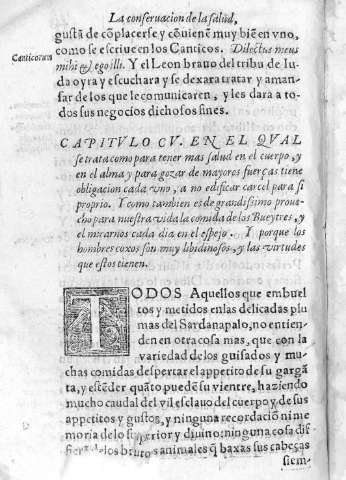 La conseruacion de la salud,
gustã de cõplacerse y cõuienẽ muy biẽ en vno,
como se escriue en los Canticos. Dilectus meus
Canticorum
mihi & ego illi. Y el Leon brauo del tribu de Iu-
da oyra y escuchara y se dexara tratar y aman-
sar de los que le comunicaren, y les dara a to-
dos sus negocios dichosos fines.
CAPITVLO CV. EN EL QVAL
se trata como para tener mas salud en el cuerpo, y
en el alma y para gozar de mayores fuerças tiene
obligacion cada vno, a no edificar carcel para si
proprio. Y como tambien es de grandissimo proue-
cho para nuestra vida la comida de los Bueytres, y
el mirarnos cada dia en el espejo. Y porque los
hombres coxos son muy libidinosos, y las virtudes
que estos tienen.
TODOS Aquellos que embuel
tos y metidos en las delicadas plu
mas del Sardanapalo, no entien-
den en otra cosa mas, que con la
variedad de los guisados y mu-
chas comidas despertar el appetito de su gargã
ta, y estẽder quãto puedẽ su vientre, haziendo
mucho caudal del vil esclauo del cuerpo y de sus
appetitos y gustos, y ninguna recordaciõ ni me
moria de lo superior y diuino: ninguna cosa dif
fierẽ de los brutos animales q̃ baxas sus cabeças
siem-